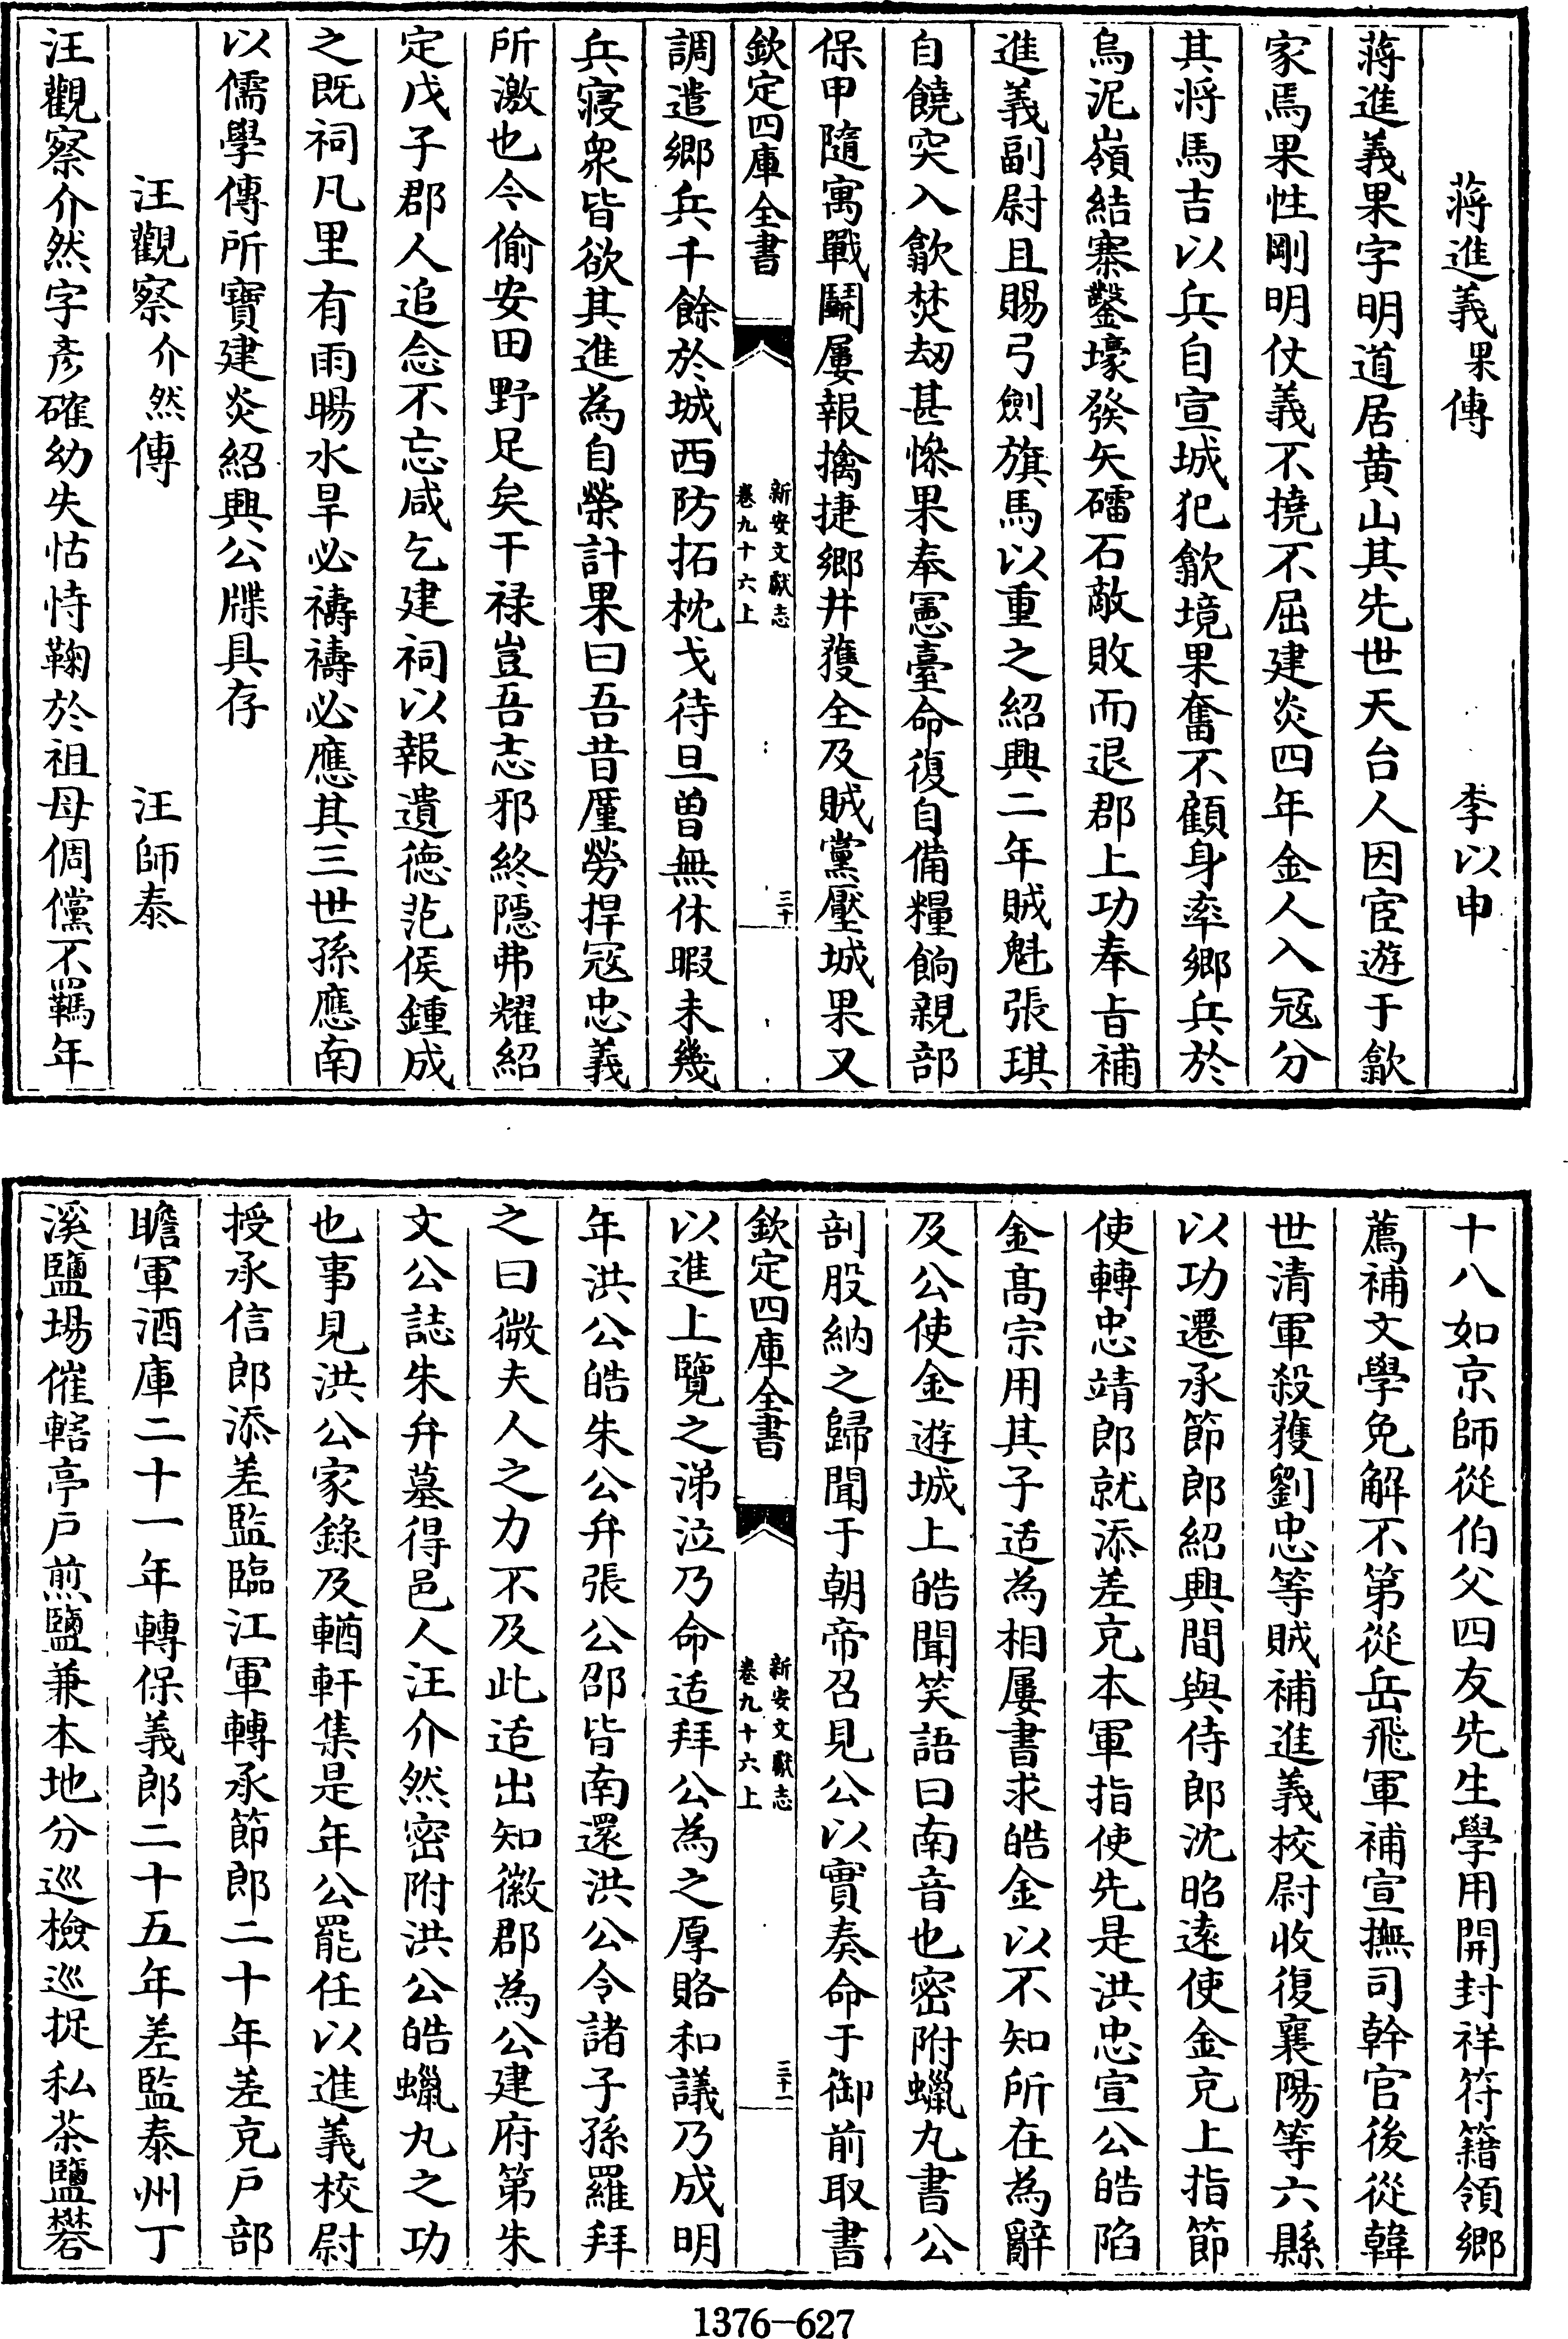 蔣進義果傳　李以申
蔣進義果字明道居黄山其先世天台人因宦遊于歙
家焉果性剛明仗義不撓不屈建炎四年金人入冦分
其将馬吉以兵自宣城犯歙境果奮不顧身率鄉兵於
烏泥嶺結寨鑿壕發矢礌石敵敗而退郡上功奉㫖補
進義副尉且賜弓劍旗馬以重之紹興二年賊魁張琪
自饒突入歙焚刼甚慘果奉憲臺命復自備糧餉親部
保甲隨寓戰鬭屢報擒捷鄉井獲全及賊黨壓城果又
欽定四庫全書　新安文獻志　卷九十六上　三十
調遣鄉兵千餘於城西防拓枕戈待旦曽無休暇未幾
兵寝衆皆欲其進為自榮計果曰吾昔厪勞捍冦忠義
所激也今偷安田野足矣干禄豈吾志邪終隠弗耀紹
定戊子郡人追念不忘咸乞建祠以報遺徳范侯鍾成
之既祠凡里有雨暘水旱必禱禱必應其三世孫應南
以儒學傳所寶建炎紹興公牒具存
汪觀察介然傳　汪師泰
汪觀察介然字彦確幼失怙恃鞠於祖母倜儻不羈年
十八如京師從伯父四友先生學用開封祥符籍領鄉
薦補文學免解不第從岳飛軍補宣撫司幹官後從韓
世清軍殺獲劉忠等賊補進義校尉收復襄陽等六縣
以功遷承節郎紹興間與侍郎沈昭逺使金充上指節
使轉忠靖郎就添差充本軍指使先是洪忠宣公皓陷
金髙宗用其子适為相屢書求皓金以不知所在為辭
及公使金遊城上皓聞笑語曰南音也密附蠟丸書公
剖股納之歸聞于朝帝召見公以實奏命于御前取書
欽定四庫全書　新安文獻志　卷九十六上　三十一
以進上覽之涕泣乃命适拜公為之厚賂和議乃成明
年洪公皓朱公弁張公邵皆南還洪公令諸子孫羅拜
之曰微夫人之力不及此适出知徽郡為公建府第朱
文公誌朱弁墓得邑人汪介然密附洪公皓蠟丸之功
也事見洪公家錄及輶軒集是年公罷任以進義校尉
授承信郎添差監臨江軍轉承節郎二十年差充戸部
贍軍酒庫二十一年轉保義郎二十五年差監泰州丁
溪鹽場催轄亭戸煎鹽兼本地分巡檢巡捉私茶鹽礬
1376-627